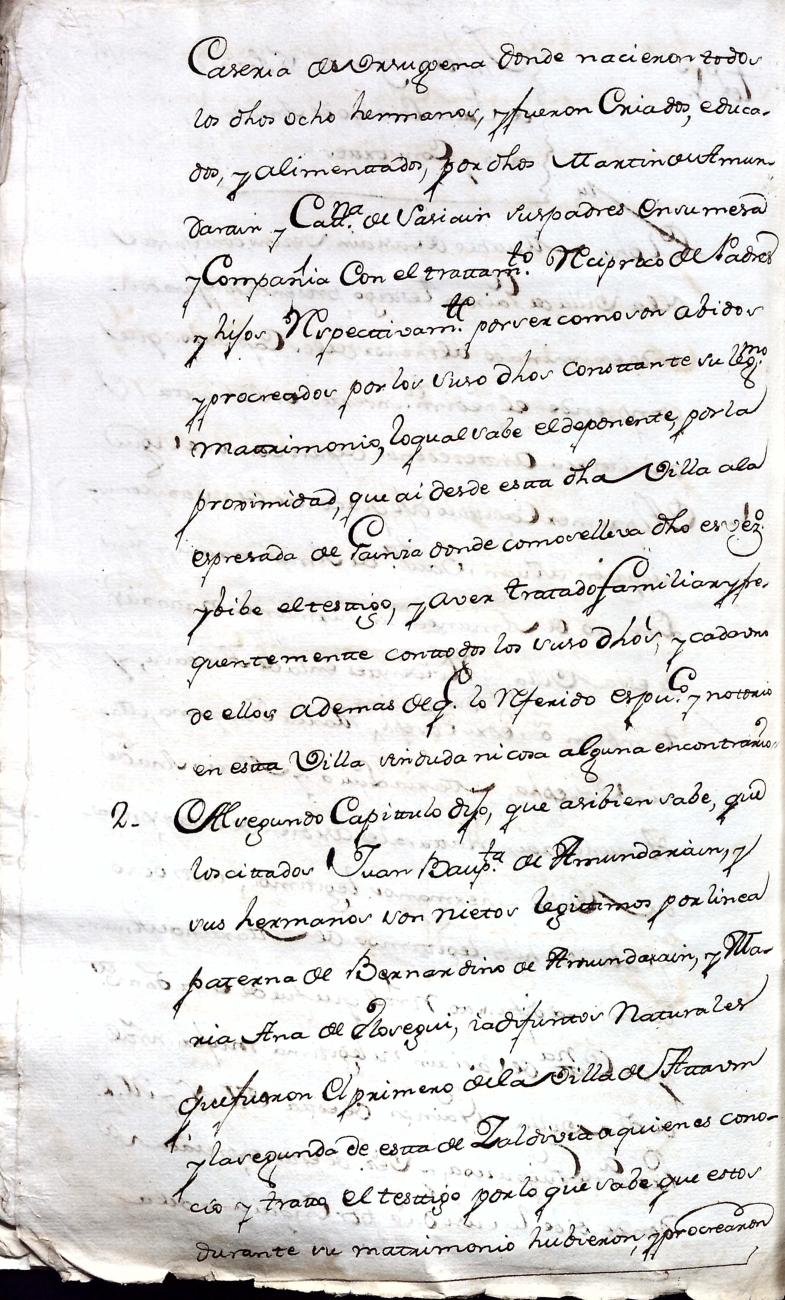 Caseria de Ursugoena donde nacieron todos
los dhos ocho hermanos, y fueron Criados, educa-
dos, y alimenttados, por dhos Martin de Amun-
darain y Catt.ⁿᵃ de Sasiain sus padres en su mesa
y Compañia Con el trattam.ᵗᵒ Reciproco de Padres
y hijos Respecttivam.ᵗᵉ por ser como son abidos
y procreados por los suso dhos consttante su leg.ᵐᵒ
Mattrimonio, lo qual sabe el deponente, por la
proximidad, que ai desde estta dha Villa a la
espresada de Gainza donde como se lleva dho es vez.º
y bibe el testtigo, y aver tratado familiar y fre-
quentemente con ttodos los suso dhos, y cada uno
de ellos ademas de q.ᵉ lo Referido es pu.ᶜᵒ y notorio
en estta Villa sin duda ni cosa alguna en contrario
2- Al segundo Capittulo dijo, que asibien sabe, que
los cittados Juan Baup.ᵗᵃ de Amundaràin, y
sus hermanos son nietos legittimos por linea
paterna de Bernardino de Amundarain, y Ma-
ria Ana de Elosegui, ia difuntos Naturales
que fueron el primero de la Villa de Attaun
y la segunda de estta de Zaldivia a quienes cono-
cio y tratto el testtigo por lo que sabe que estos
durante su matrimonio hubieron, y procrearon